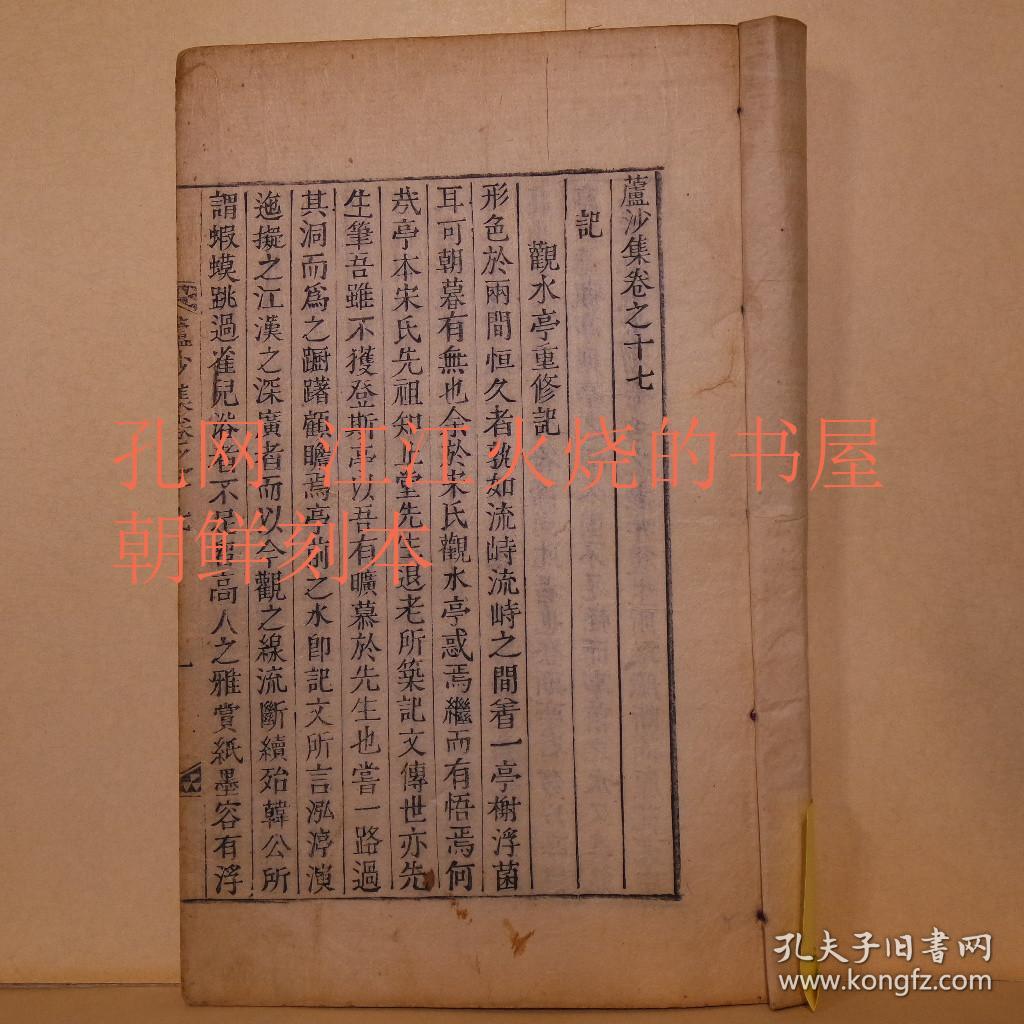 蘆沙集卷之十七
記
觀水亭重修記
形色於兩間恒久者孰如流峙流峙之間着一亭榭浮菌
耳可朝暮有無也余於宋氏觀水亭惑焉繼而有悟焉何
㢤亭本宋氏先祖知止堂先生退老所築記文傳世亦先
生筆吾雖不獲登斯亭以吾有曠慕於先生也嘗一路過
其洞而爲之蹰躇顧瞻焉亭前之水卽記文所言泓渟演
迤擬之江漢之深廣者而以今觀之線流斷續殆韓公所
謂蝦蟆跳過雀兒浴者不足當高人之雅賞紙墨容有浮
蘆沙集卷之十七
一
孔网 江江火烧的书屋
朝鲜刻本
孔夫子旧书网
www.kongfz.com